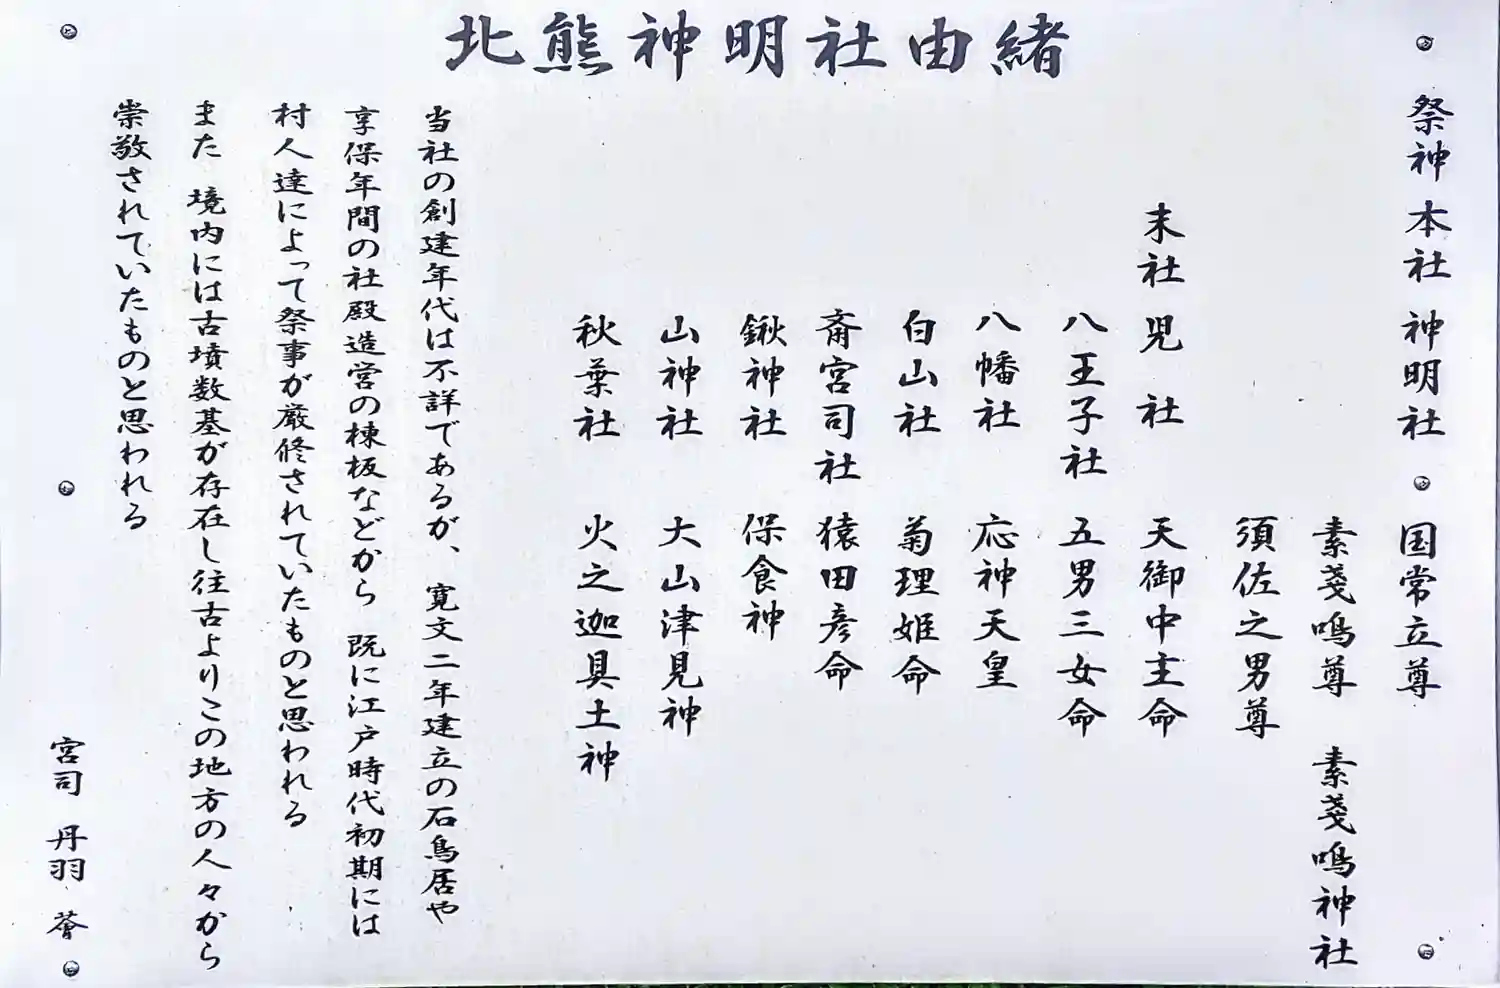 北熊神明社由緒
祭神 本社 神明社 国常立尊
素戔鳴尊 素戔鳴神社
須佐之男尊
末社 児社 天御中主命
八王子社 五男三女命
八幡社 応神天皇
白山社 菊理姫命
斎宮司社 猿田彦命
鍬神社 保食神
山神社 大山津見神
秋葉社 火之迦具土神
当社の創建年代は不詳であるが、寛文二年建立の石鳥居や
享保年間の社殿造営の棟板などから 既に江戸時代初期には
村人達によって祭事が厳修されていたものと思われる
また 境内には古墳数基が存在し往古よりこの地方の人々から
崇敬されていたものと思われる
宮司 丹羽